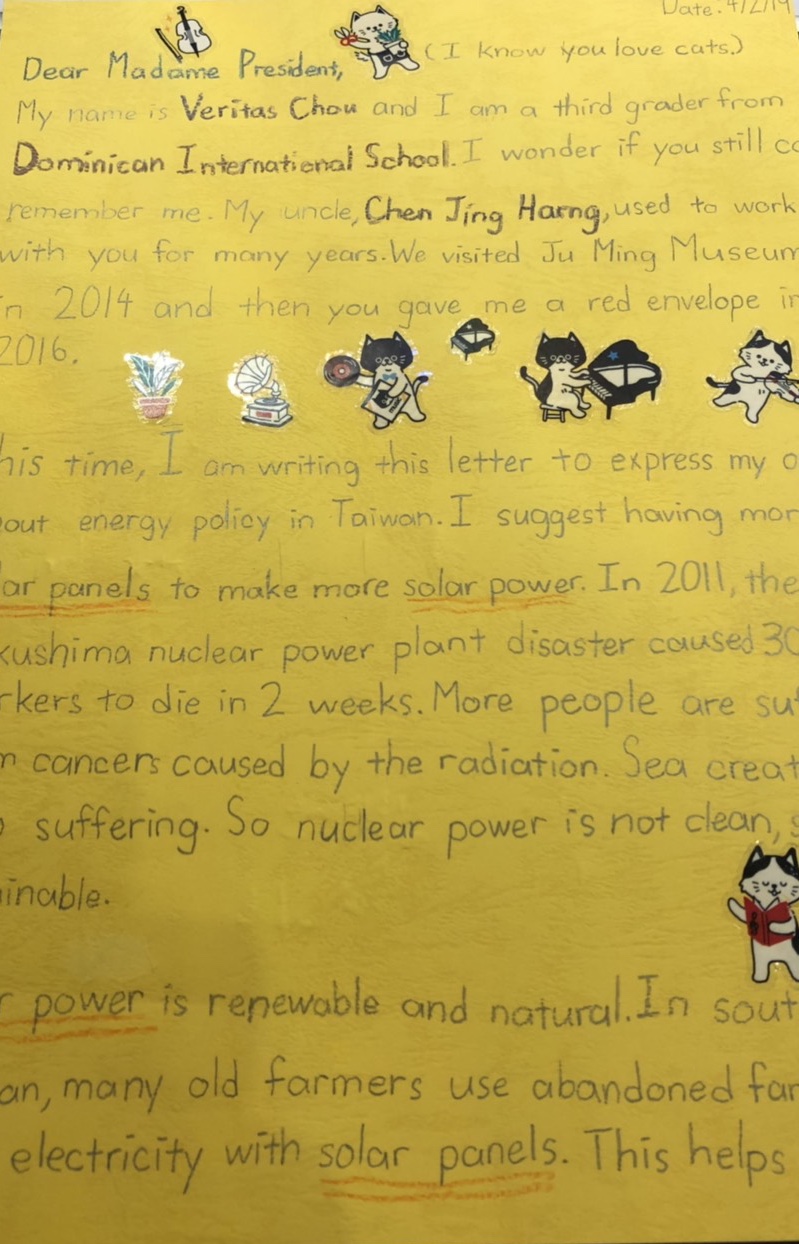 Date: 4/2/19
Dear Madame President,
(I know you love cats.)
My name is Veritas Chou and I am a third grader from
Dominican International School. I wonder if you still
remember me. My uncle, Chen Jing Harng, used to work
with you for many years. We visited Ju Ming Museum
in 2014 and then you gave me a red envelope in
2016.
his time, I am writing this letter to express my o
out energy policy in Taiwan. I suggest having mor
ar panels to make more solar power. In 2011, the
kushima nuclear power plant disaster caused 30
rkers to die in 2 weeks. More people are suf
m cancers caused by the radiation. Sea creat
o suffering. So nuclear power is not clean, s
inable.
r power is renewable and natural. In sout
an, many old farmers use abandoned far
electricity with solar panels. This helps